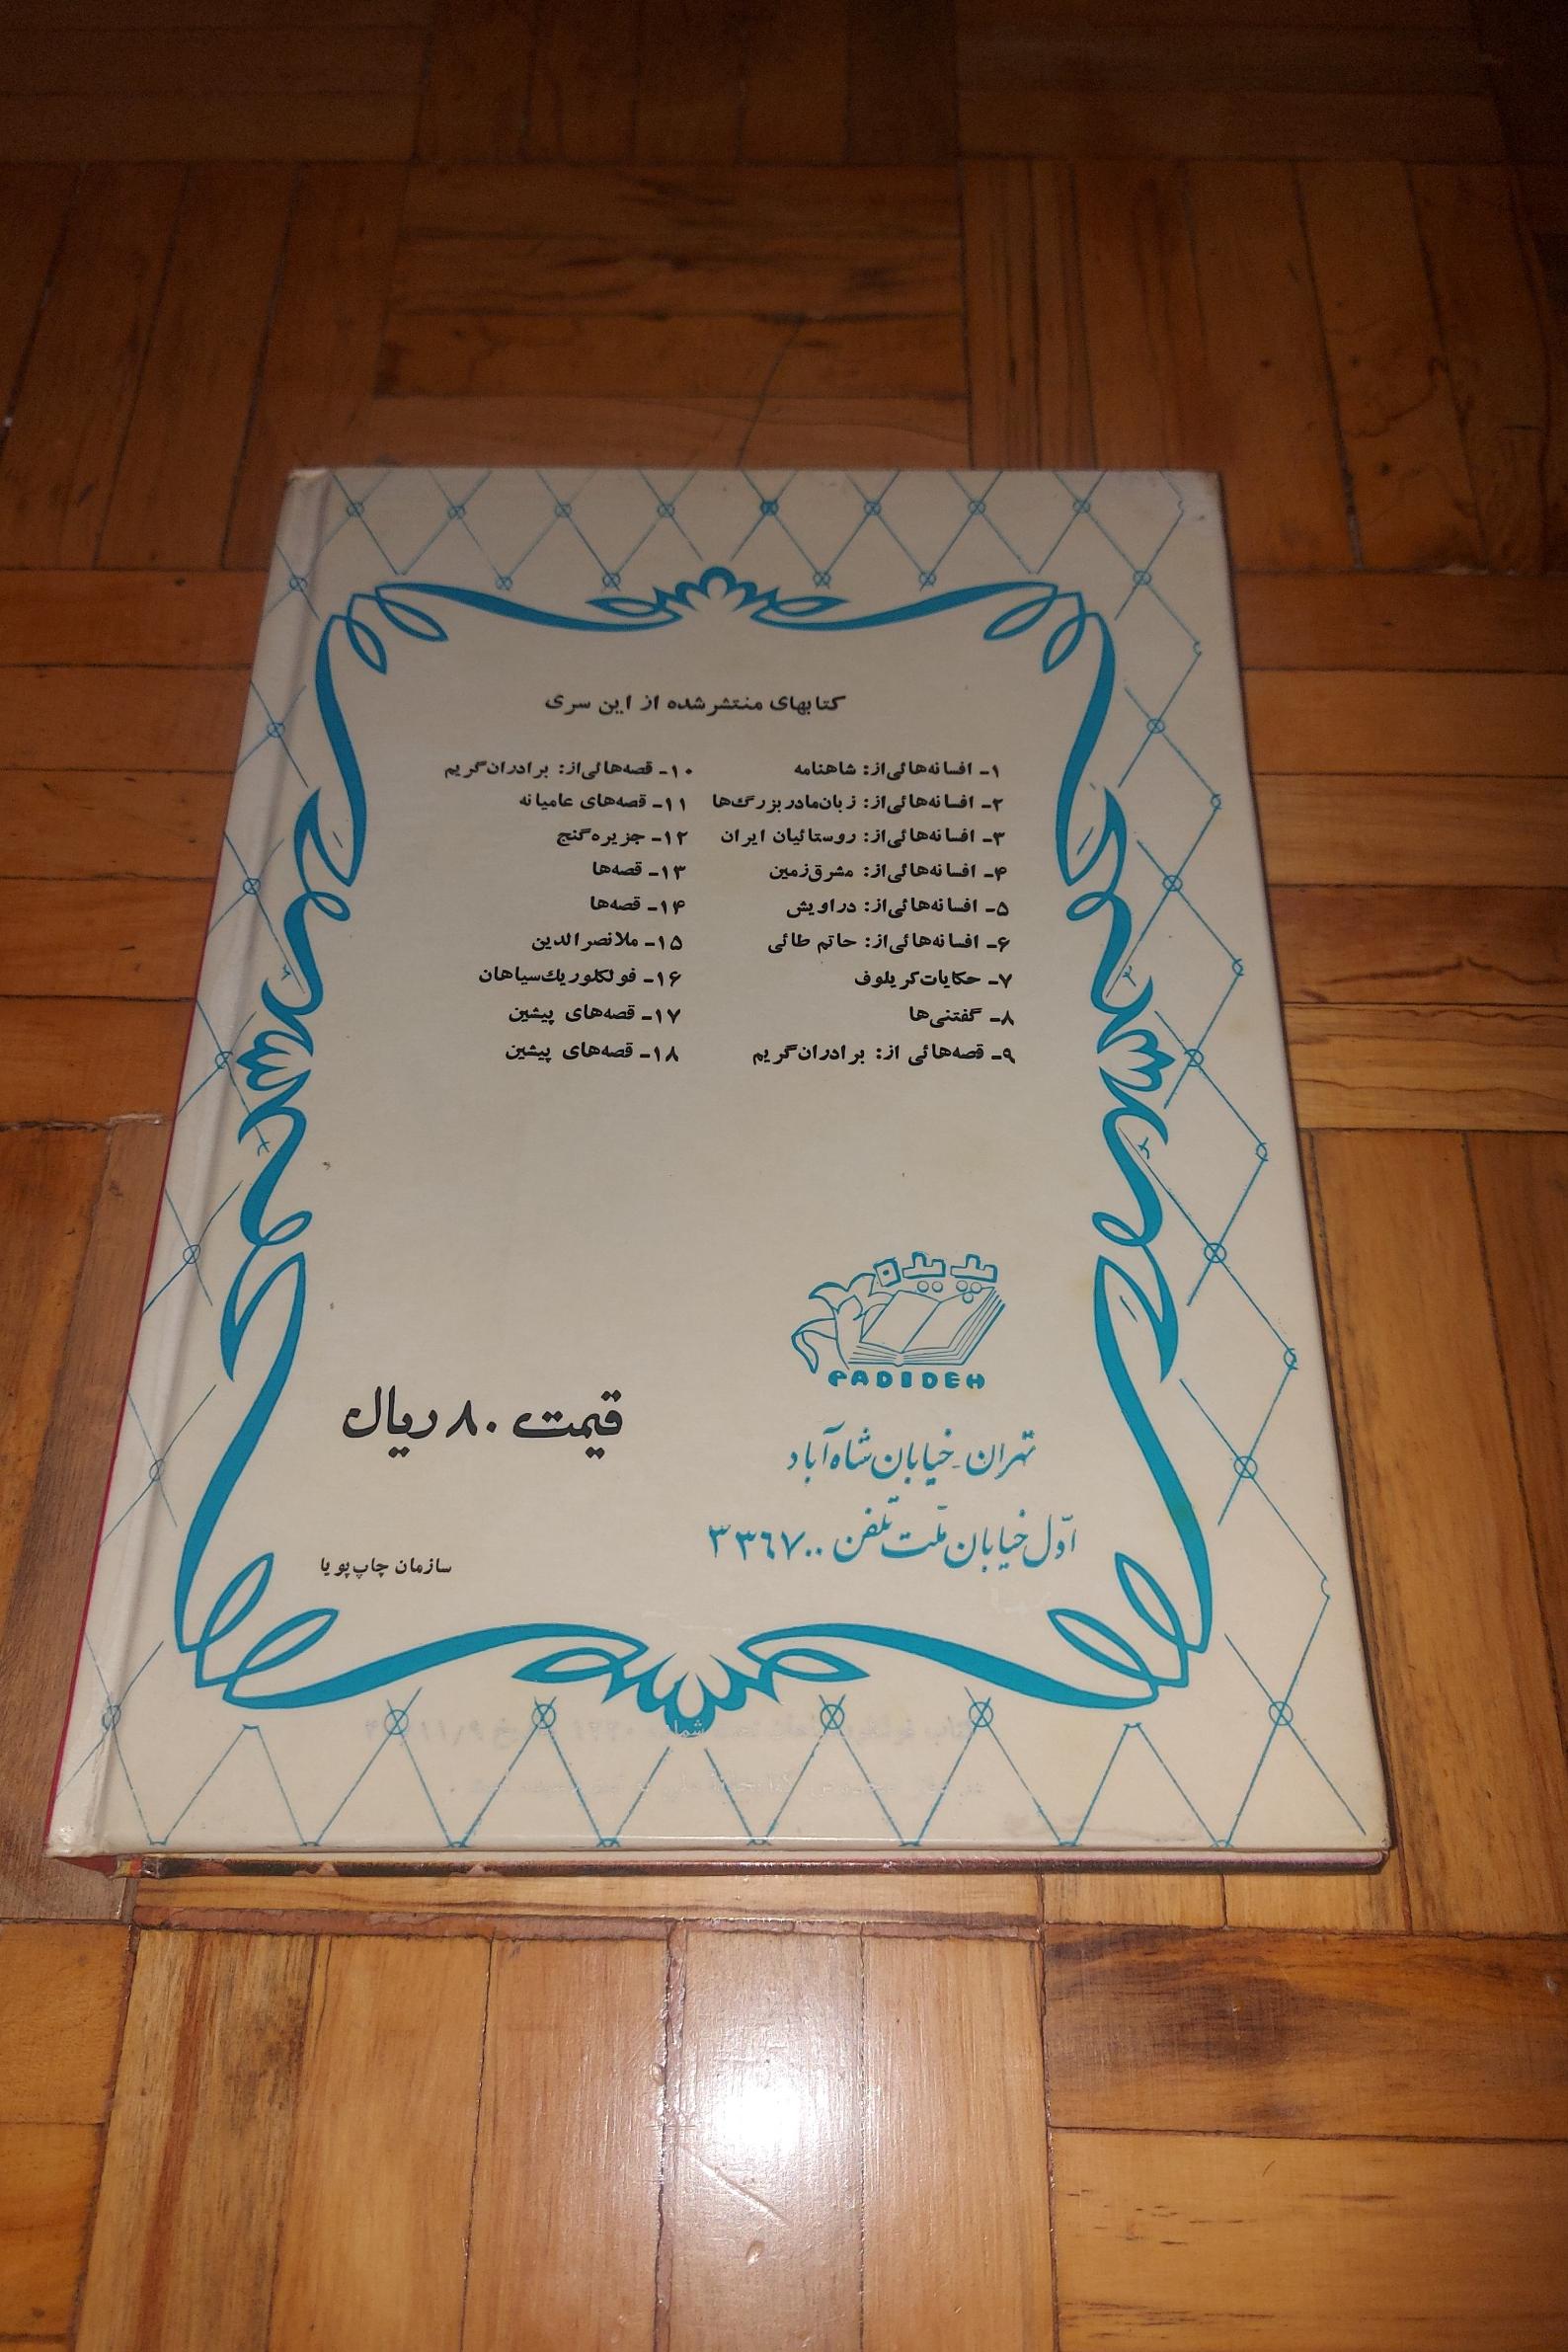 کتابهای منتشر شده از این سری
۱ـ افسانه‌هائی‌از: شاهنامه
۲ـ افسانه‌هائی‌از: زبان‌مادربزرگ‌ها
۳ـ افسانه‌هائی‌از: روستائیان ایران
۴ـ افسانه‌هائی‌از: مشرق‌زمین
۵ـ افسانه‌هائی‌از: دراویش
۶ـ افسانه‌هائی‌از: حاتم طائی
۷ـ حکایات‌کریلوف
۸ـ گفتنی‌ها
۹ـ قصه‌هائی از: برادران‌گریم
۱۰ـ قصه‌هائی‌از: برادران‌گریم
۱۱ـ قصه‌های عامیانه
۱۲ـ جزیره‌گنج
۱۳ـ قصه‌ها
۱۴ـ قصه‌ها
۱۵ـ ملانصرالدین
۱۶ـ فولکلوریك‌سیاهان
۱۷ـ قصه‌های پیشین
۱۸ـ قصه‌های پیشین
پدیده
PADIDEH
قیمت ۸۰ ریال
تهران ـ خیابان شاه‌آباد
اوّل خیابان ملّت تلفن ۳۳٦٧۰۰
سازمان چاپ پویا